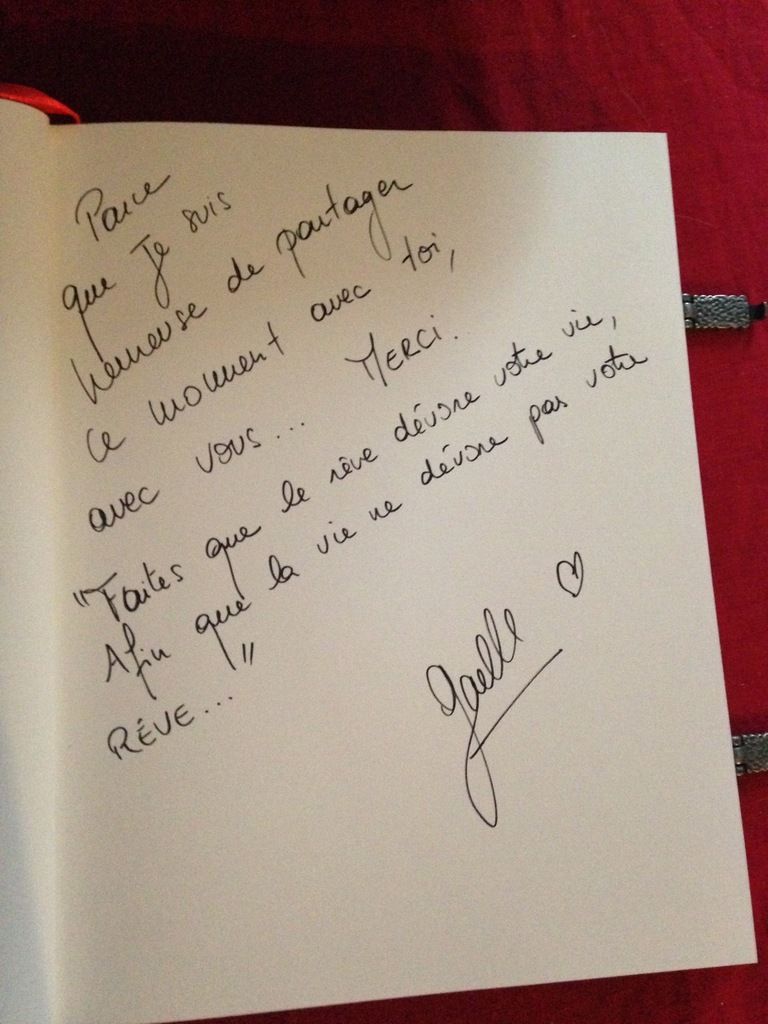 Parce
que Je suis
heureuse de partager
ce moment avec toi,
avec vous... MERCI..
"Faites que le rêve dévore votre vie,
Afin que la vie ne dévore pas votre
RÊVE..."
Gaelle ♡